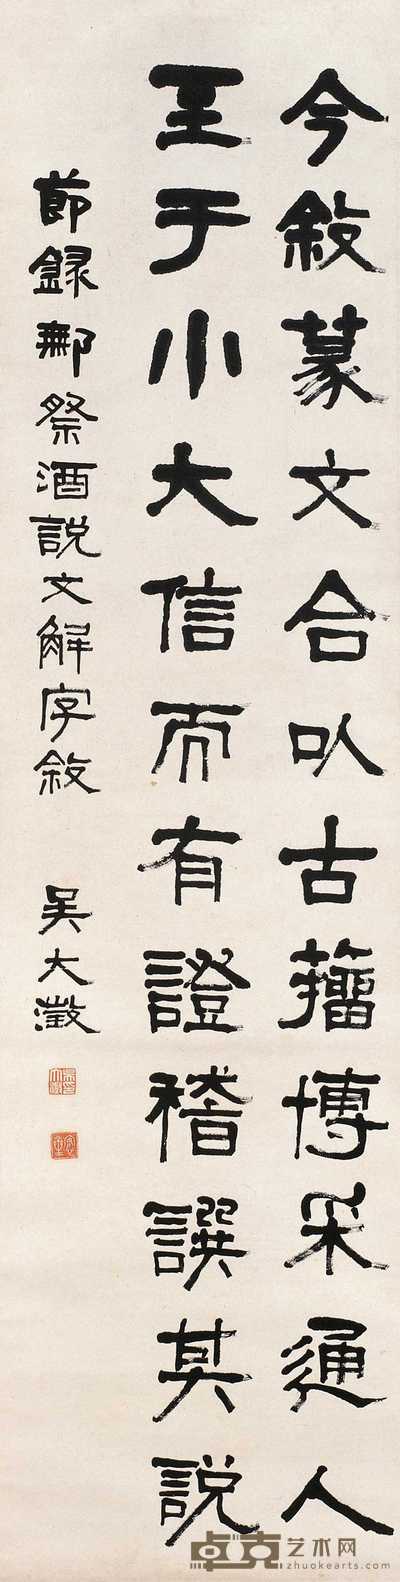 今敘篆文合㠯古籀博采通人
至于小大信而有證稽譔其說
節録鄦祭酒說文解字敘
吴大澂
卓克艺术网
zhuokearts.com